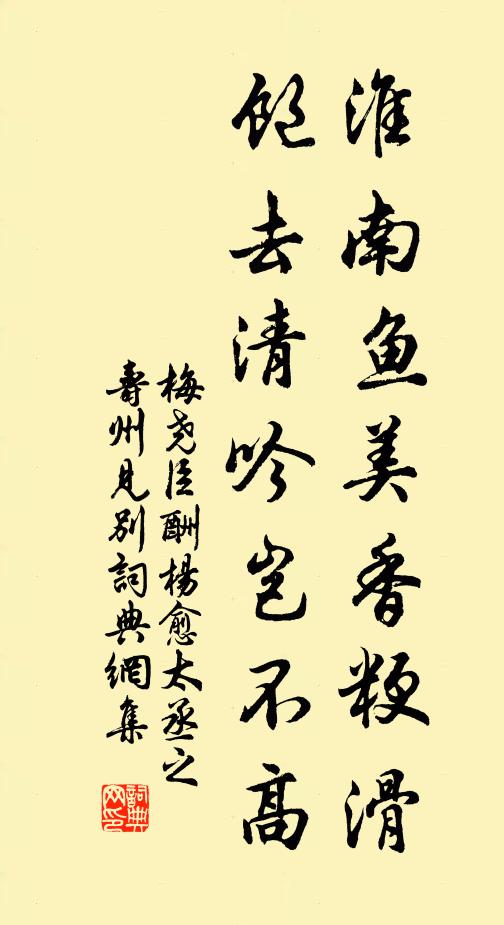 淮南鱼美香粳滑
饱去清吟岂不高
梅尧臣酬楊愈太丞之
壽州見别詞典網集
詞典网印